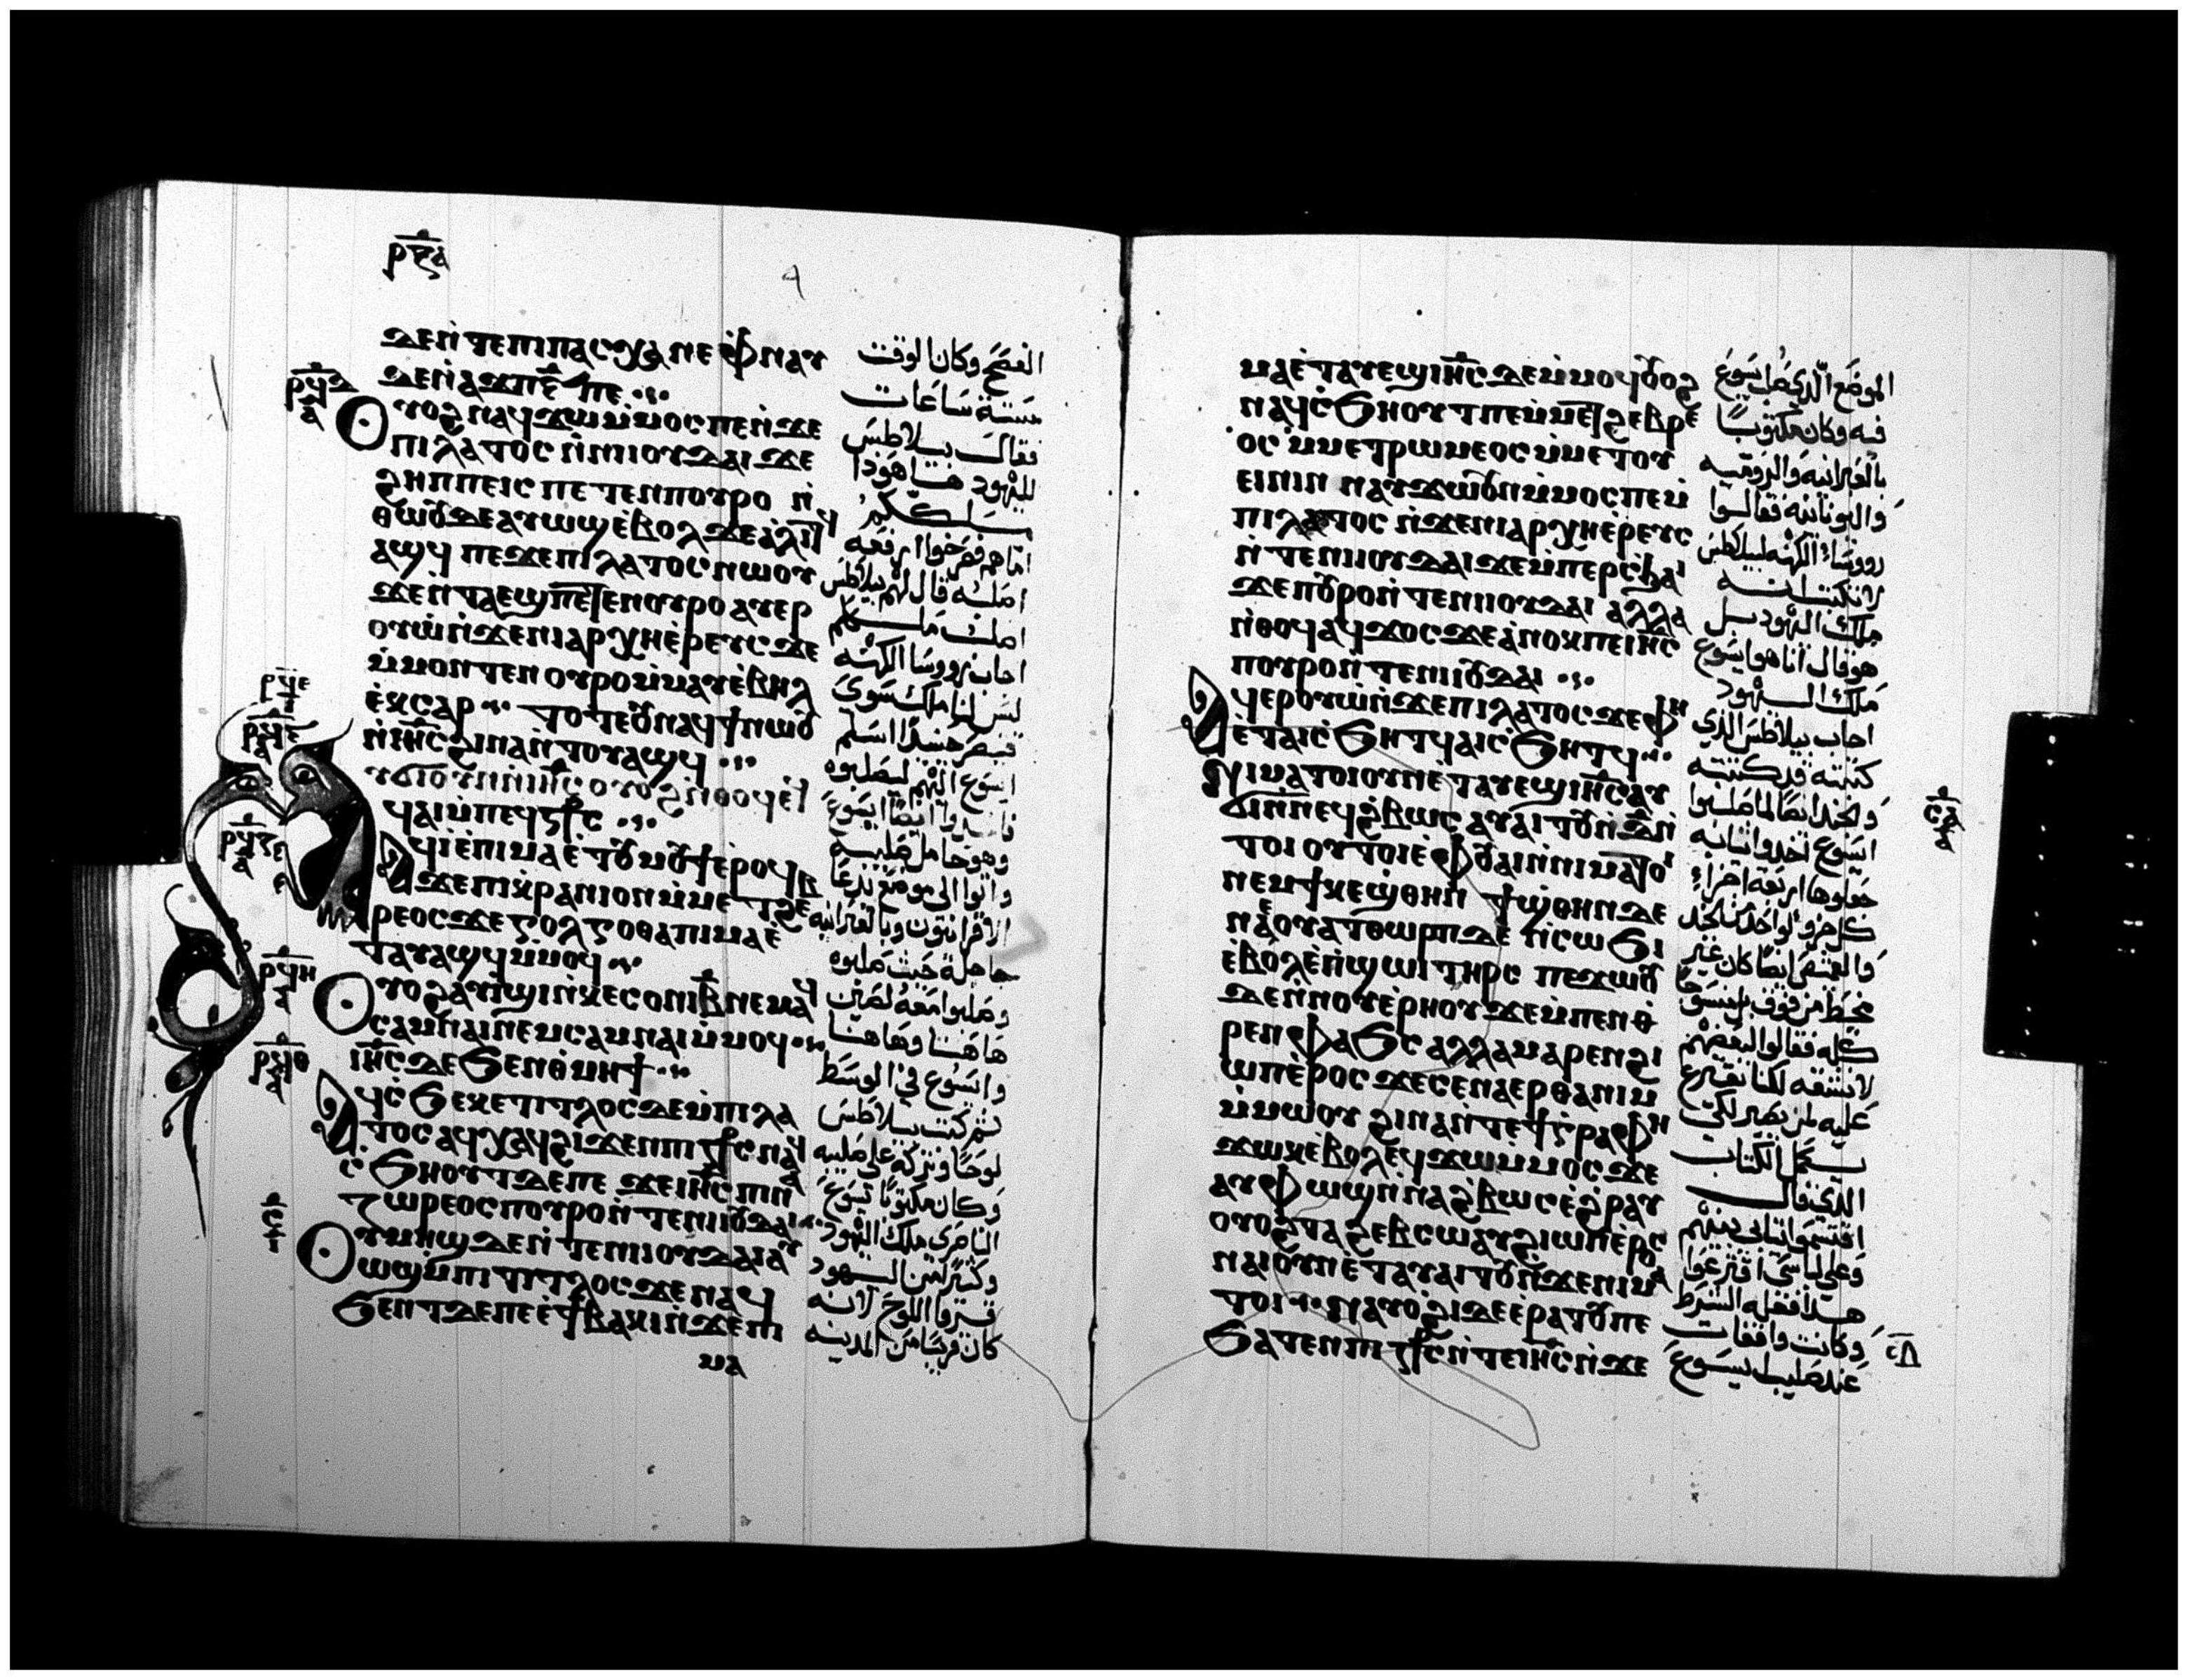 ⲣⲝⲁ
ϧⲉⲛ ⲧⲉⲡⲓⲡⲁⲥⲭⲁ ⲛⲉ ⲫⲛⲁⲩ
ϫⲉⲛ ⲁϫⲡ ⲋ̅ ⲡⲉ
ⲟⲩⲟϩ ⲛⲁϥϫⲱ ⲙ̀ⲙⲟⲥ ⲡⲉ ⲛ̀ϫⲉ
ⲡⲓⲗⲁⲧⲟⲥ ⲛ̀ⲛⲓⲟⲩⲇⲁⲓ ϫⲉ
ϩⲏⲡⲡⲉ ⲓⲥ ⲡⲉⲧⲉⲛⲡⲟⲩⲣⲟ ⲛ̀
ⲑⲱⲟⲩ ⲇⲉ ⲁⲩⲱϣ ⲉ̀ⲃⲟⲗ ϫⲉ ⲁ̀ⲗⲓⲧϥ
ⲁϣϥ ⲡⲉϫⲉ ⲡⲓⲗⲁⲧⲟⲥ ⲛⲱⲟⲩ
ϫⲉ ⲛ̀ⲧⲁⲉϣ ⲡⲉⲧⲉⲛⲟⲩⲣⲟ ⲁⲩⲉⲣ
ⲟⲩⲱ̀ ⲛ̀ϫⲉ ⲛⲓⲁⲣⲭⲏⲉ̀ⲣⲉⲩⲥ ϫⲉ
ⲙ̀ⲙⲟⲛ ⲧⲉⲛ ⲟⲩⲣⲟ ⲙ̀ⲙⲁⲩ ⲉ̀ⲃⲏⲗ
ⲉ̀ⲕⲉⲥⲁⲣ ⲧⲟⲧⲉ ⲟⲩⲛ ⲁϥϯ ⲛⲱⲟⲩ
ⲛ̀ⲓⲏ̅ⲥ ϩⲓⲛⲁ ⲛ̀ⲧⲟⲩⲁϣϥ
ⲁⲩϭⲓ ⲟⲩⲛ ⲛ̀ⲓⲏ̅ⲥ ⲟⲩⲟϩ ⲛ̀ⲑⲟϥ ⲉⲧ
ϥⲁⲓ ⲙ̀ⲡⲉϥⲥⲧⲥ
ⲁϥⲓ̀ ⲉ̀ⲡⲓⲙⲁ ⲉ̀ⲧⲟⲩⲙⲟⲩϯ ⲉ̀ⲣⲟϥ
ϫⲉ ⲡⲓⲕⲣⲁⲛⲓⲟⲛ ⲙ̀ⲙⲉⲧϩⲉⲃ
ⲣⲉⲟⲥ ϫⲉ ⲅⲟⲗⲅⲟⲑⲁ ⲡⲓⲙⲁ ⲉ̀
ⲧⲁⲩⲁϣϥ ⲙ̀ⲙⲟϥ
ⲟⲩⲟϩ ⲁⲩⲓ̀ϣⲓ ⲛ̀ⲕⲉⲥⲟⲛⲓ ⲃ̅ ⲛⲉⲙⲁϥ
ⲥⲁⲙⲛⲁⲓ ⲛⲉⲙ ⲥⲁⲙⲛⲁⲓ ⲙ̀ⲙⲟϥ
ⲓⲏ̅ⲥ ⲇⲉ ϧⲉⲛ ⲑⲙⲏϯ
ⲁϥⲥ̀ϧⲉ ⲕⲉⲧⲓⲧⲗⲟⲥ ϫⲉⲙ̀ⲡⲓⲗⲁ
ⲧⲟⲥ ⲁϥⲭⲁϥ ϩⲓϫⲉⲛ ⲡⲓⲥⲧⲥ ⲛⲁϥ
ⲥ̀ϧⲏⲟⲩⲧ ⲇⲉ ⲡⲉ ϫⲉ ⲓⲏ̅ⲥ ⲡⲓⲛ
ⲍⲱⲣⲉⲟⲥ ⲡⲟⲩⲣⲟ ⲛ̀ⲧⲉ ⲛⲓⲟⲩⲇⲁⲓ
ⲟⲩⲙⲏϣ ϫⲉⲛ ⲛ̀ⲧⲉ ⲛⲓⲓⲟⲩⲇⲁⲓ ⲁⲩ
ⲱϣ ⲙ̀ⲡⲓⲧⲓⲧⲗⲟⲥ ϫⲉ ⲛⲁϥ
ϧⲉⲛⲧ ⲇⲉ ⲡⲉ ⲉ̀ϯⲃⲁⲕⲓ ⲛ̀ϫⲉ ⲡⲓ
ⲙⲁ
الفصح وكان الوقت
ستة ساعات
فقال بيلاطس
لليهود هاهوذا
ملككم
اما هم فصرخوا ارفعه
اصلبه قال لهم بيلاطس
اصلب ملككم
اجاب رووسا الكهنة
ليس لنا ملك سوى
قيصر حينيذ اسلم
ايسوع اليهم ليصلبوه
فاخذوا ايضا ايسوع
وهو حامل صليبه
واتوا الى موضع يدعا
الاقرانيون وبالعبرانية
جاجلة حيث صلبوه
وصلبوا معه لصين
هاهنا وهاهنا
وايسوع في الوسط
ثم كتب بيلاطس
لوحا وتركه على صليبه
وكان مكتوبا يسوع
الناصرى ملك اليهود
وكثير من اليهود
قروا اللوح لانه
كان قريبا من المدينة
ⲙⲁ ⲉ̀ⲧⲁⲩⲉϣ ⲓⲏ̅ⲥ ϫⲉⲙ̀ⲙⲟϥ ⲟⲩⲟϩ
ⲛⲁϥⲥ̀ϧⲏⲟⲩⲧ ⲡⲉ ⲙ̀ⲙⲉⲧϩⲉⲃⲣⲉ
ⲟⲥ ⲙ̀ⲙⲉⲧⲣⲱⲙⲉⲟⲥ ⲙ̀ⲙⲉⲧⲟⲩ
ⲉⲓⲛⲓⲛ ⲛⲁⲩϫⲱ ⲟⲩⲛ ⲙ̀ⲙⲟⲥ ⲡⲉ ⲙ̀
ⲡⲓⲗⲁⲧⲟⲥ ⲛ̀ϫⲉ ⲛⲓⲁⲣⲭⲏⲉ̀ⲣⲉⲩⲥ
ⲛ̀ⲧⲉ ⲛⲓⲓⲟⲩⲇⲁⲓ ϫⲉ ⲙ̀ⲡⲉⲣⲥϧⲁⲓ
ϫⲉ ⲡⲟⲩⲣⲟ ⲛ̀ⲧⲉ ⲛⲓⲓⲟⲩⲇⲁⲓ ⲁⲗⲗⲁ
ⲛ̀ⲑⲟϥ ⲁϥϫⲟⲥ ϫⲉ ⲁ̀ⲛⲟⲕ ⲡⲉ ⲓⲏ̅ⲥ
ⲡⲟⲩⲣⲟ ⲛ̀ⲧⲉ ⲛⲓⲟⲩⲇⲁⲓ
ⲁϥⲉⲣⲟⲩⲱ̀ ⲛ̀ϫⲉ ⲡⲓⲗⲁⲧⲟⲥ ϫⲉ ⲫⲏ
ⲉ̀ⲧⲁⲓⲥ̀ϧⲏⲧϥ ⲁⲓⲥ̀ϧⲏⲧϥ
ⲛⲓⲙⲁⲧⲟⲓ ⲟⲩⲛ ⲉ̀ⲧⲁⲩⲉϣ ⲓⲏ̅ⲥ ⲁⲩ
ϭⲓ ⲛ̀ⲛⲉϥϩ̀ⲃⲱⲥ ⲁⲩⲁⲓⲧⲟⲩ ⲛ̀ ⲇ̅ ⲛ̀
ⲧⲟⲓ ⲟⲩⲧⲟⲓ ⲉ̀ⲫⲟⲩⲁⲓ ⲛ̀ⲛⲓⲙⲁⲧⲟⲓ
ⲛⲉⲙ ϯⲕⲉϣ̀ⲑⲏⲛ ϯϣ̀ⲑⲏⲛ ⲇⲉ
ⲛⲉ ⲟⲩⲁⲧⲑⲱⲣⲡ ⲇⲉ ⲧⲉ ⲥⲱϧⲓ
ⲉ̀ⲃⲟⲗ ⲉ̀ⲡϣⲱⲓ ⲧⲏⲣⲥ ⲡⲉϫⲱⲟⲩ
ϫⲉⲛ ⲛⲟⲩⲉ̀ⲣⲏⲟⲩ ϫⲉ ⲙ̀ⲡⲉⲛⲑ
ⲣⲉⲛⲫⲁϧⲥ ⲁⲗⲗⲁ ⲙⲁⲣⲉⲛϩⲓ
ⲱⲡ ⲉ̀ⲣⲟⲥ ϫⲉ ⲥⲉⲛⲁⲉⲣⲑⲁⲛⲓⲙ
ⲙ̀ⲙⲱⲟⲩ ϩⲓⲛⲁ ⲛ̀ⲧⲉ ϯⲅⲣⲁⲫⲏ
ϫⲱⲕ ⲉ̀ⲃⲟⲗ ⲉϥϫⲱ ⲙ̀ⲙⲟⲥ ϫⲉ
ⲁⲩⲫⲱϣ ⲛ̀ⲛⲁϩ̀ⲃⲱⲥ ⲉ̀ϩ̀ⲣⲁⲩ
ⲟⲩⲟϩ ⲧⲁϩⲉⲃⲥⲱ ⲁⲩϩⲓⲱⲡ ⲉ̀ⲣⲟⲥ
ⲛⲁⲓ ⲟⲩⲛ ⲉ̀ⲧⲁⲩⲁⲓⲧⲟⲩ ⲛ̀ϫⲉ ⲛⲓⲙⲁ
ⲧⲟⲓ ⲛⲁⲩⲟ̀ϩⲓ ⲇⲉ ⲉ̀ⲣⲁⲧⲟⲩ ⲡⲉ
ϧⲁⲧⲉⲛ ⲡⲓⲥⲧⲥ ⲛ̀ⲧⲉ ⲓⲏ̅ⲥ ⲛ̀ϫⲉ
الموضع الذي صلب ايسوع
فيه وكان مكتوبا
بالعبرانية والرومية
واليونانية فقالوا
رووساء الكهنة لبيلاطس
لا تكتب انه
ملك اليهود بل
هو قال انا هو ايسوع
ملك اليهود
اجاب بيلاطس الذي
كتبته قد كتبته
والجند ايضا لما صلبوا
ايسوع اخذوا ثيابه
جعلوها اربعة اجزاء
كل جزو لواحد من الجند
والقميص ايضا كان غير
مخيط من فوق بل منسوجا
كله فقالوا لبعضهم
لا نشقه لكنا نقترع
عليه لمن يصير لكى
يكمل الكتاب
الذي قال
اقتسموا ثيابى بينهم
وعلى لباسى اقترعوا
هذا فعله الشرط
وكانت واقفات
عند صليب ايسوع